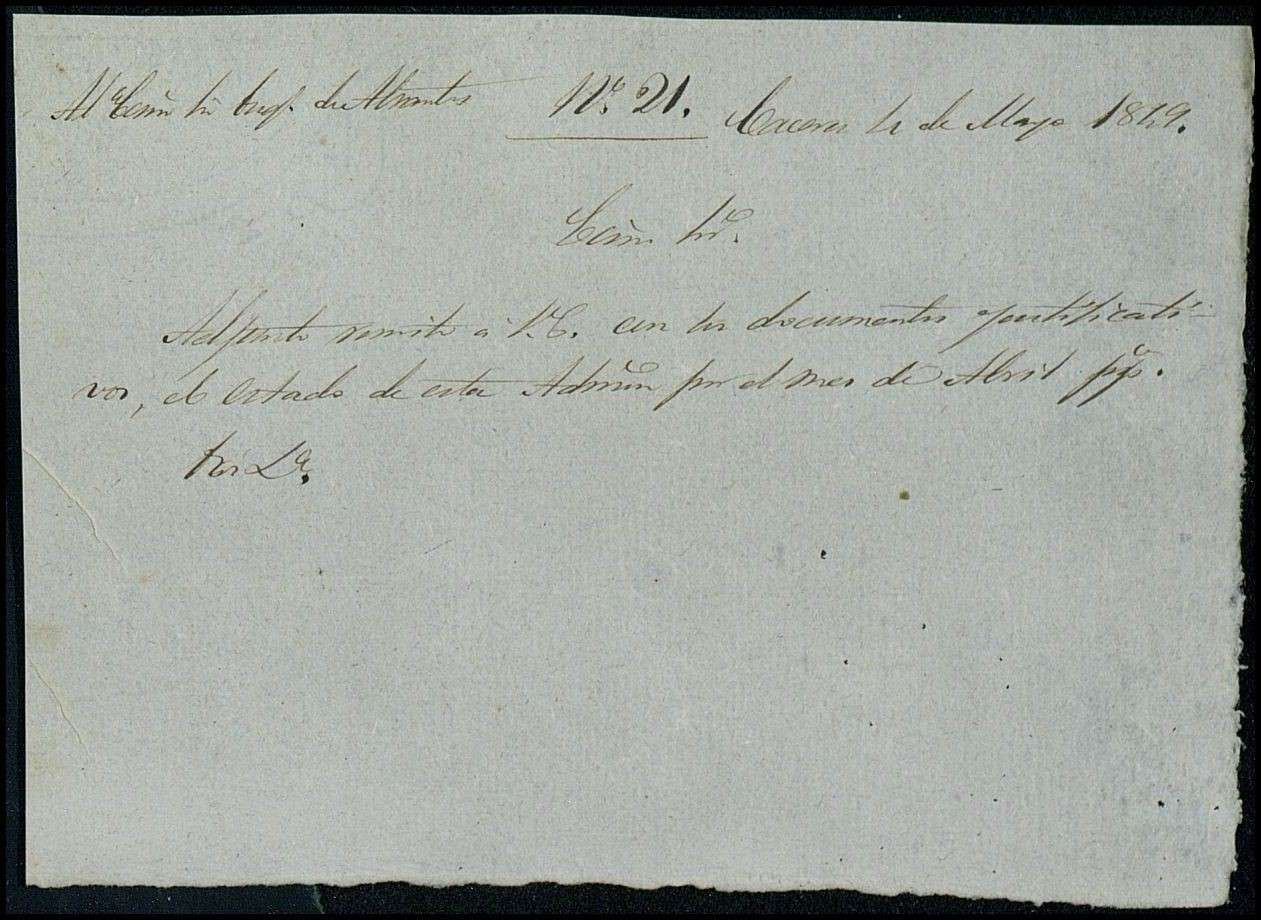 Al Excmo Sr Duq. de Abrantes Nº 21. Caceres 4 de Mayo 1849.
Excmo Sr.
Adjunto remito á V.E. con los documentos justificati-
vos, el estado de esta Admón por el mes de Abril ppº.